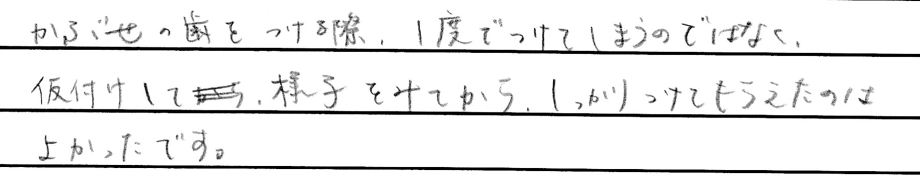 かぶせの歯をつける際、1度でつけてしまうのではなく、
仮付けして、様子をみてから、しっかりつけてもらえたのは
よかったです。